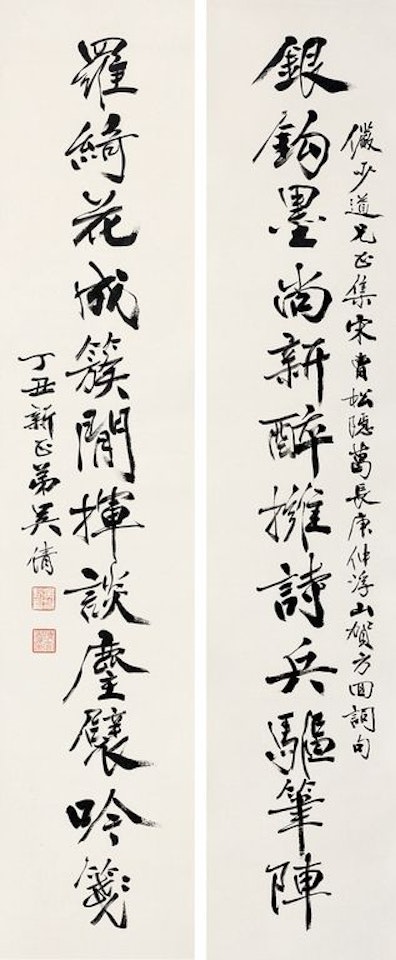 儼少道兄正集宋曹松隱葛長庚仲浮山賀方回詞句
銀鈎墨尚新醉擁詩兵驅筆陣
羅綺花成簇閒揮談麈襞吟箋
丁丑新正弟吳倩